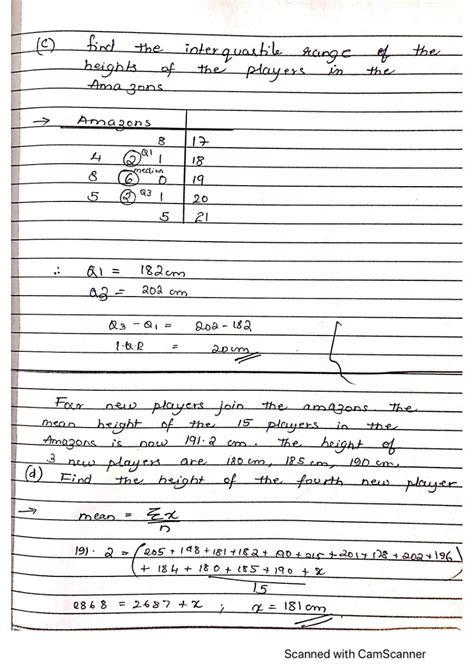 (c) find the interquartile range of the
heights of the players in the
Amazons
→ Amazons
8 | 17
4 2 Q1 1 | 18
8 6 median 0 | 19
5 2 Q3 1 | 20
5 | 21
∴ Q1 = 182 cm
Q3 = 202 cm
Q3 - Q1 = 202 - 182
I.Q.R = 20 cm
Four new players join the amazons. The
mean height of the 15 players in the
Amazons is now 191.2 cm. The height of
3 new players are 180 cm, 185 cm, 190 cm.
(d) Find the height of the fourth new player
→ mean = Σx / n
191.2 = (205 + 198 + 181 + 182 + 190 + 215 + 201 + 178 + 202 + 196
+ 184 + 180 + 185 + 190 + x)
15
2868 = 2687 + x ; x = 181 cm
Scanned with CamScanner